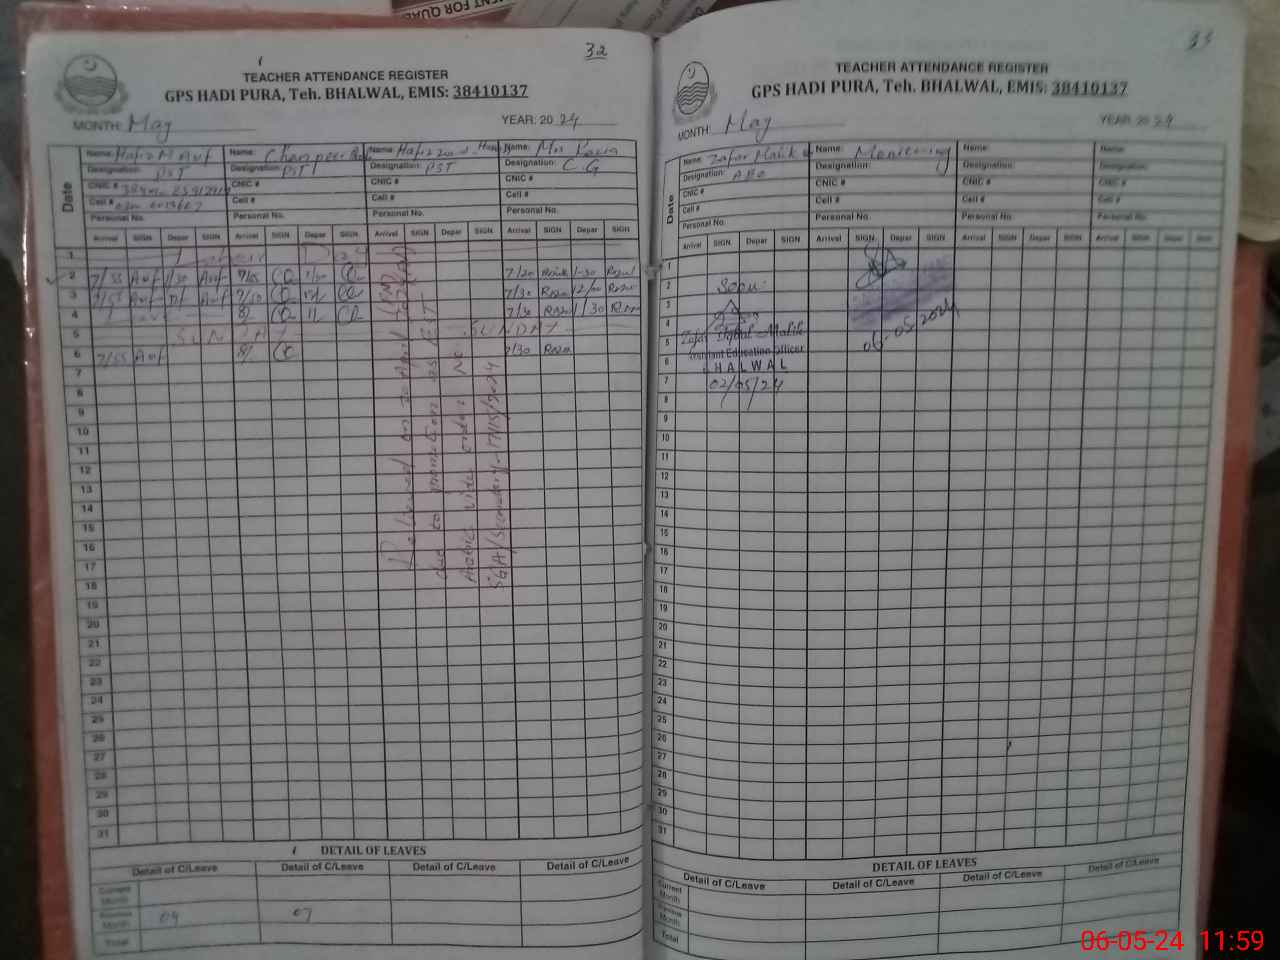 MENT FOR QUA
32
TEACHER ATTENDANCE REGISTER
GPS HADI PURA, Teh. BHALWAL, EMIS: 38410137
MONTH: May YEAR: 2024
Name: Hafiz M Auf Name: Name: Name: Mrs
Designation: PST Designation: PST Designation: PST Designation: C G
CNIC # CNIC # CNIC # CNIC #
Cell # Cell # Cell # Cell #
Personal No. Personal No. Personal No. Personal No.
Date
Arrival SIGN Depar SIGN Arrival SIGN Depar SIGN Arrival SIGN Depar SIGN Arrival SIGN Depar SIGN
1 Day
2 7/55 Auf 1/30 Auf 7/20 1-30
3 7/55 Auf Auf 7/50 7/30 12/00
4 Leave 8/ 7/30 1/30
5 SUNDAY SUNDAY
6 7/55 Auf 8/ 7/30
7
8
9
10
11
12
13
14
15
16
17
18
19
20
21
22
23
24
25
26
27
28
29
30
31
Relieved on 30 April
due to as EST
Arabic vide order No.
SGA/Secondary-
DETAIL OF LEAVES
Detail of C/Leave Detail of C/Leave Detail of C/Leave Detail of C/Leave
Current Month
Previous Month 04 07
Total
33
TEACHER ATTENDANCE REGISTER
GPS HADI PURA, Teh. BHALWAL, EMIS: 38410137
MONTH: May YEAR: 2024
Name: Zafar Malik Name: Monitering Name: Name:
Designation: AEO Designation: Designation: Designation:
CNIC # CNIC # CNIC # CNIC #
Cell # Cell # Cell # Cell #
Personal No. Personal No. Personal No. Personal No.
Date
Arrival SIGN Depar SIGN Arrival SIGN Depar SIGN Arrival SIGN Depar SIGN Arrival SIGN Depar SIGN
1
2
3
4
5 Zafar Iqbal Malik 06-05-2024
6 Assistant Education Officer
BHALWAL
7 02/05/24
8
9
10
11
12
13
14
15
16
17
18
19
20
21
22
23
24
25
26
27
28
29
30
31
DETAIL OF LEAVES
Detail of C/Leave Detail of C/Leave Detail of C/Leave Detail of C/Leave
Current Month
Previous Month
Total
06-05-24 11:59